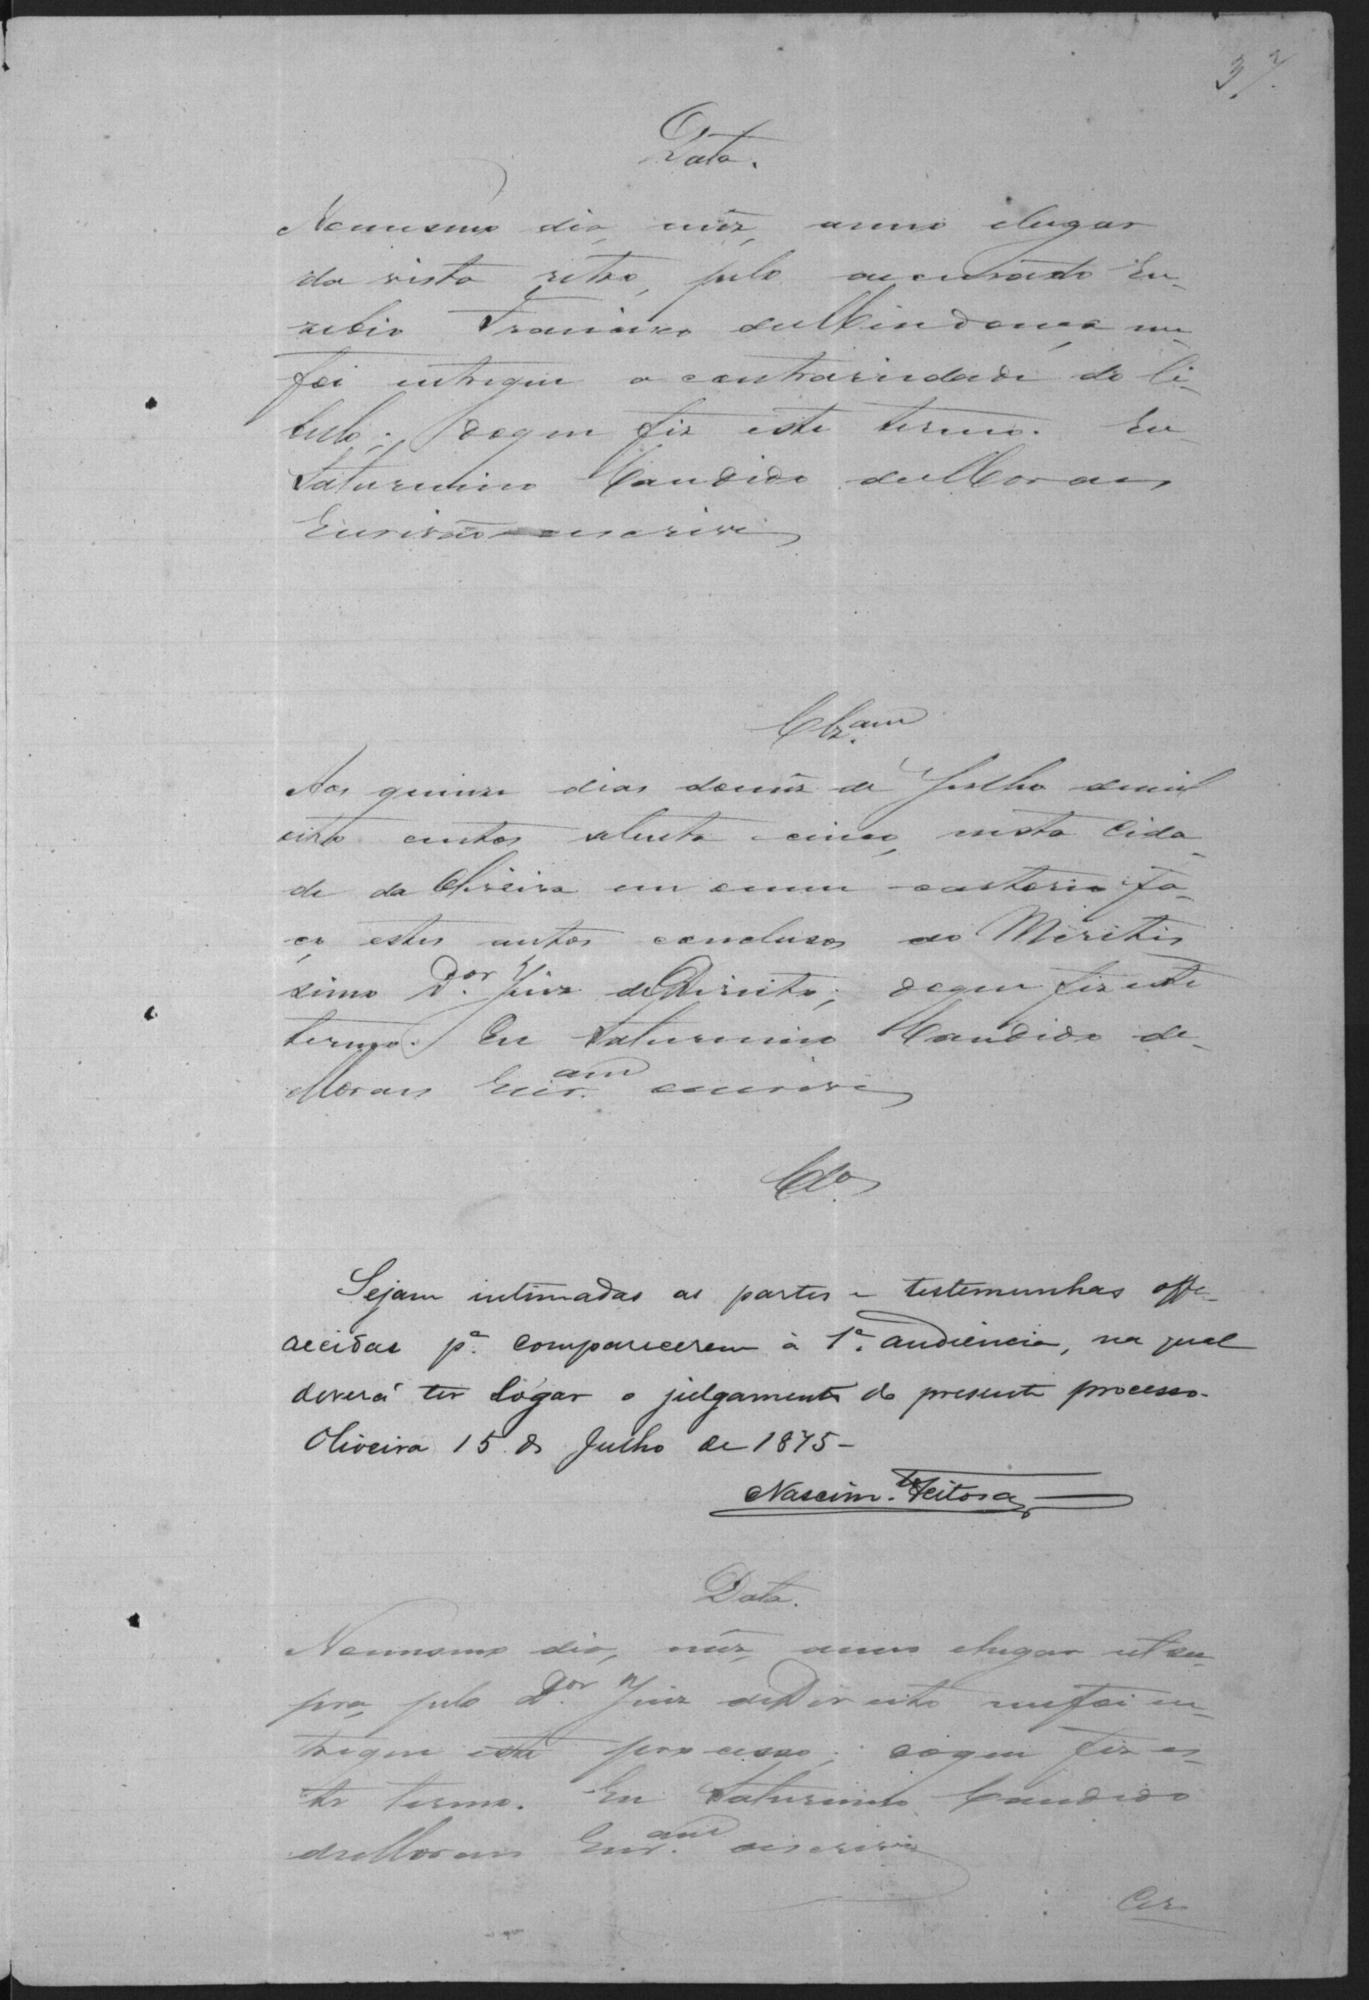 37.
Data.
No mesmo dia, mez, anno elugar
da vista retro, pelo accusado Eu-
zebio Francisco de Mendonça me
foi entregue a contrariedade do li-
bello; doque fiz este termo. Eu
Saturnino Candido de Moraes
Escrivão oescrevi
Clzam
Aos quinze dias domez de Julho demil
oito centos setenta ecinco, nesta Cida-
de da Oliveira em omeu cartorio fa-
ço estes autos conclusos ao Meritis
simo Dor. Juiz deDireito; doque fiz este
termo. Eu Saturnino Candido de-
Moraes Escram. oescrevi
Clos
Sejam intimadas as partes e testemunhas offe-
recidas pa. comparecerem á 1a. audiencia, na qual
deverá ter logar o julgamento do presente processo.
Oliveira 15 de Julho de 1875-
Nascimto. Feitosa
Data.
No mesmo dia, mez, anno elugar utsu-
pra, pelo Dor. Juiz deDireito mefoi en-
tregue este processo; doque fiz es-
te termo. Eu Saturnino Candido
de Moraes Escram. oescrevi
Cer